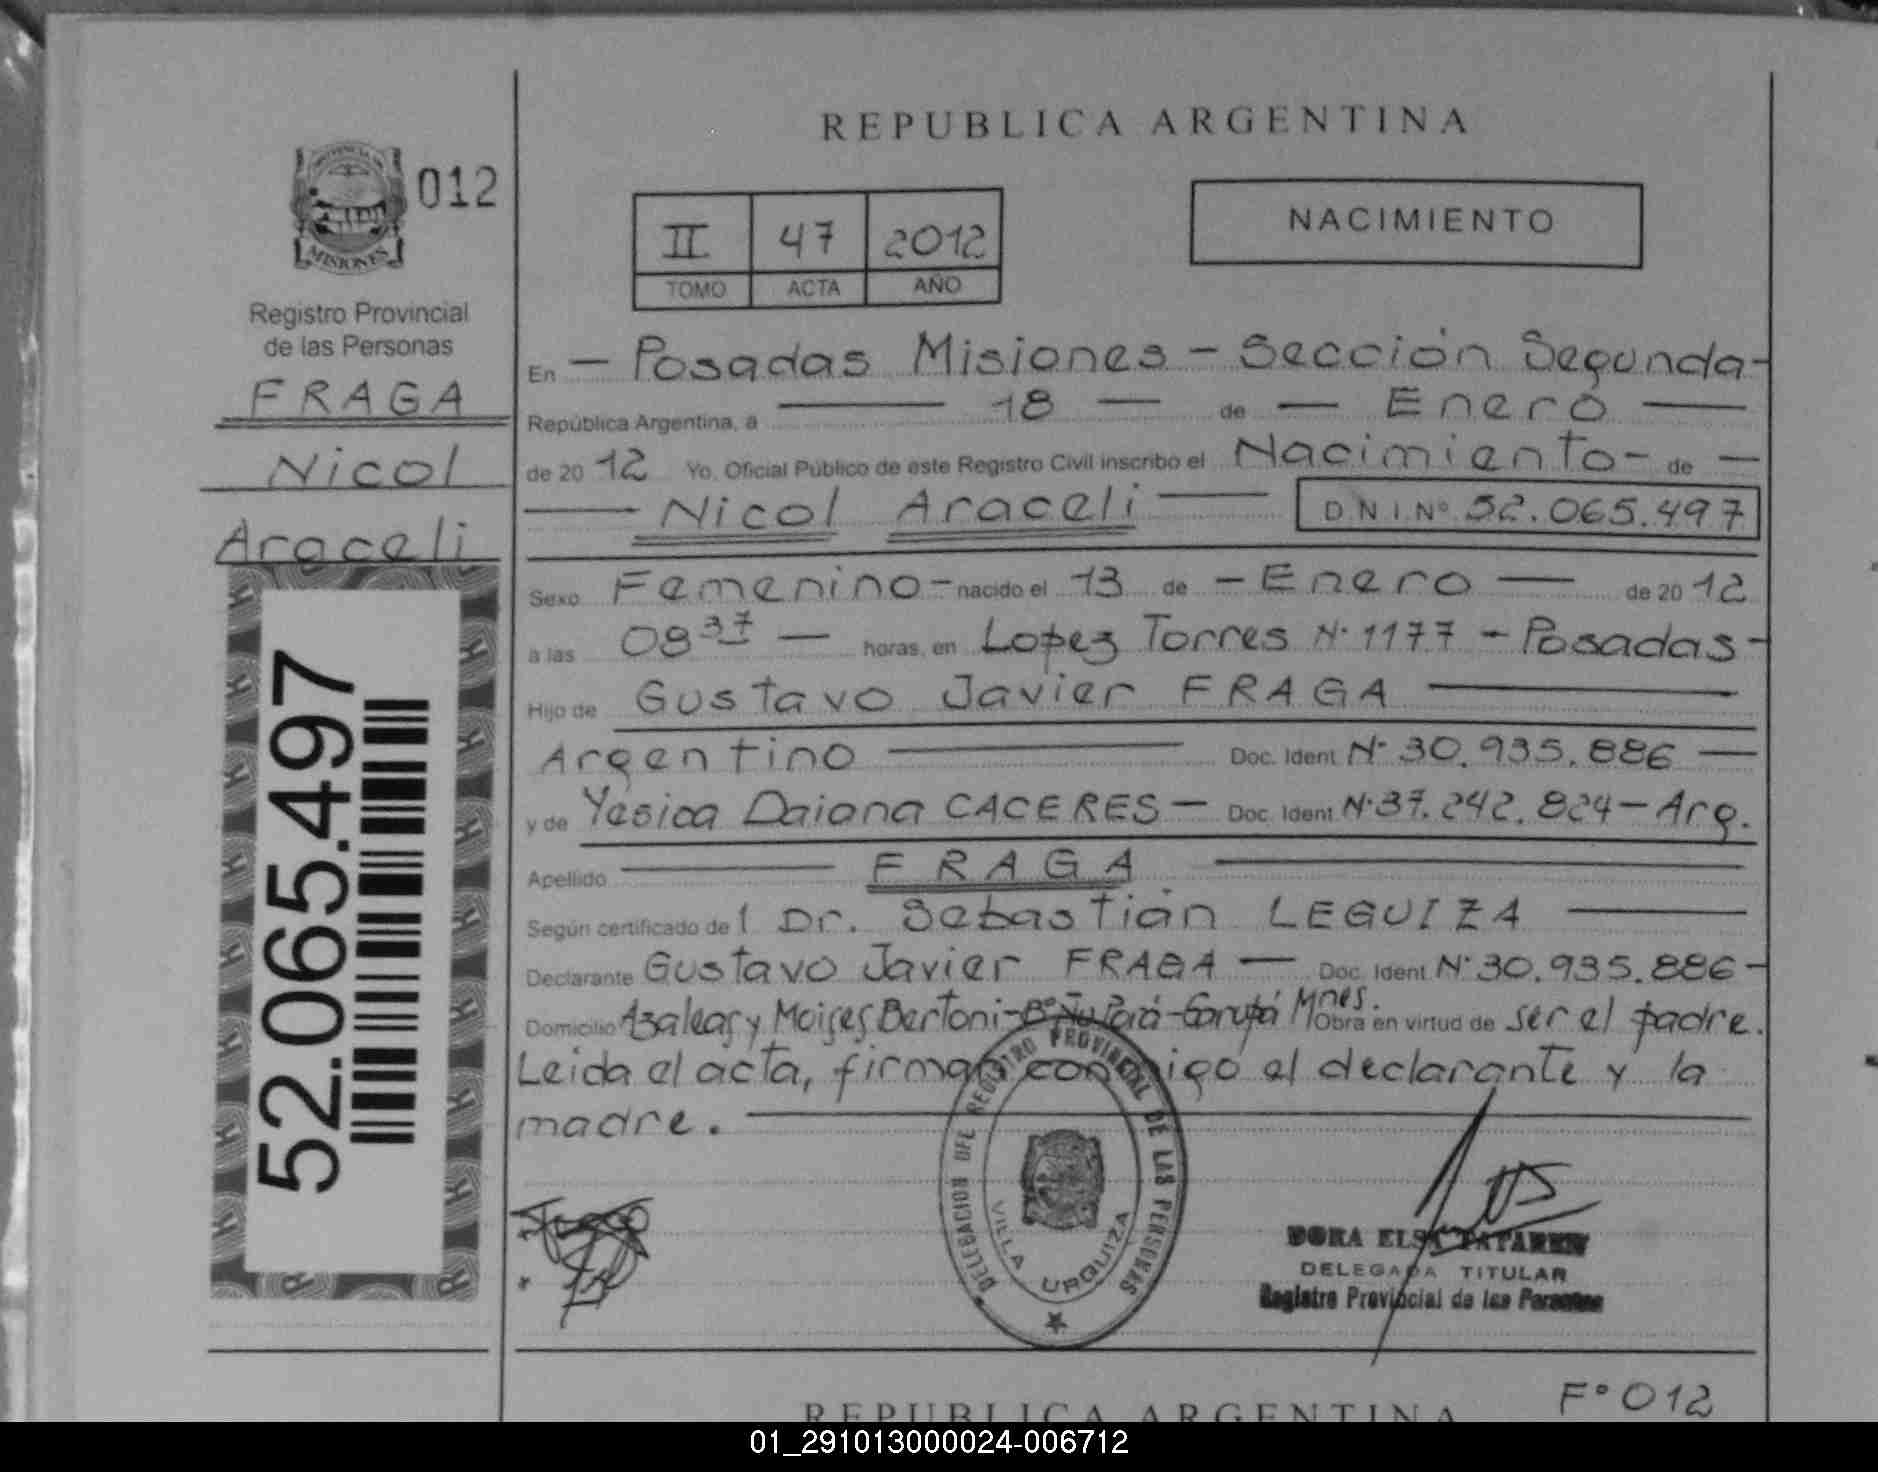 REPUBLICA ARGENTINA
PROVINCIA DE
MISIONES
012
Registro Provincial
de las Personas
FRAGA
Nicol
Araceli
52.065.497
II 47 2012
TOMO ACTA AÑO
NACIMIENTO
En - Posadas Misiones - Sección Segunda -
República Argentina, a 18 de Enero
de 20 12 Yo, Oficial Público de este Registro Civil inscribo el Nacimiento - de
Nicol Araceli D N I Nº 52.065.497
Sexo Femenino - nacido el 13 de - Enero de 20 12
a las 08 37 horas, en Lopez Torres Nº 1177 - Posadas -
Hijo de Gustavo Javier FRAGA
Argentino Doc. Ident. Nº 30.935.886
y de Yesica Daiana CACERES - Doc. Ident. Nº 37.242.824 - Arg.
Apellido FRAGA
Según certificado de l Dr. Sebastián LEGUIZA
Declarante Gustavo Javier FRAGA - Doc. Ident. Nº 30.935.886 -
Domicilio Azaleas y Moises Bertoni - Bº Ñu Porá - Garupá Mnes. Obra en virtud de ser el padre.
Leida el acta, firman conmigo el declarante y la
madre.
DELEGACION DEL REGISTRO PROVINCIAL DE LAS PERSONAS
VILLA URQUIZA
DORA ELSA
DELEGADA TITULAR
Registro Provincial de las Personas
Fº 012
REPUBLICA ARGENTINA
01_291013000024-006712